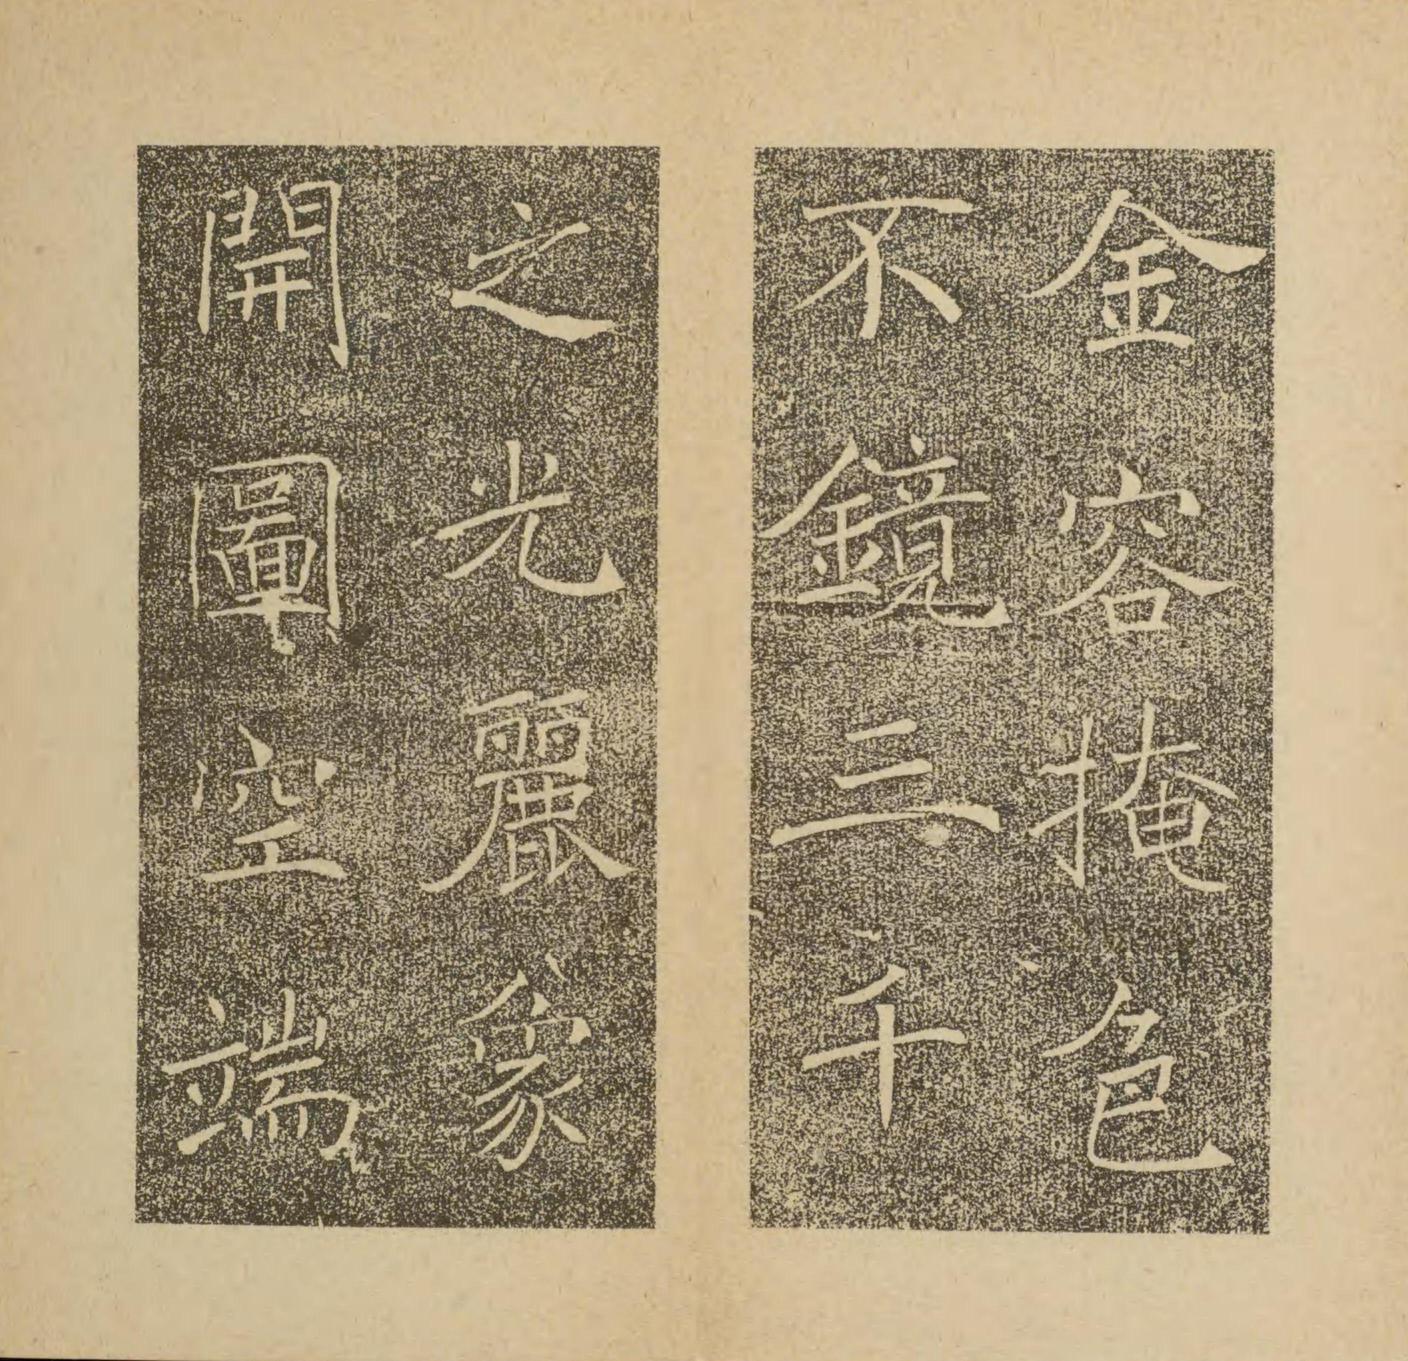 金容掩色
不鏡三千
之光麗象
開圖空端